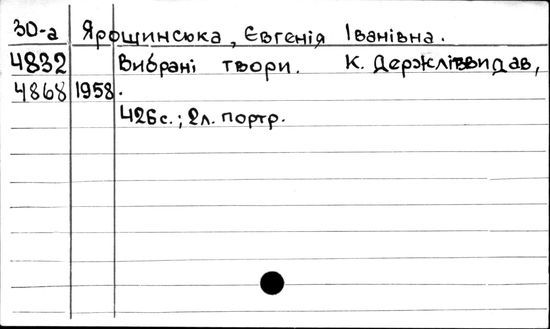 30-а Ярощинська, Євгенія Іванівна.
4832 Вибрані твори. К. Держлітвидав,
4868 1958.
426с.; 2л. портр.